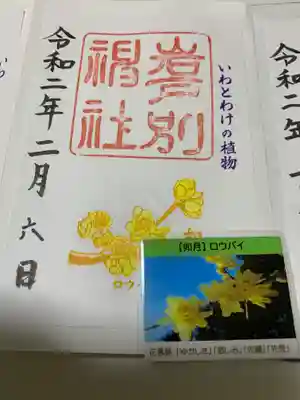 いわとわけの植物
岩戸別
神社
令和二年二月六日
ロウ
【如月】ロウバイ
花言葉「ゆかしさ」「慈しみ」「先導」「先見」
令和二年二